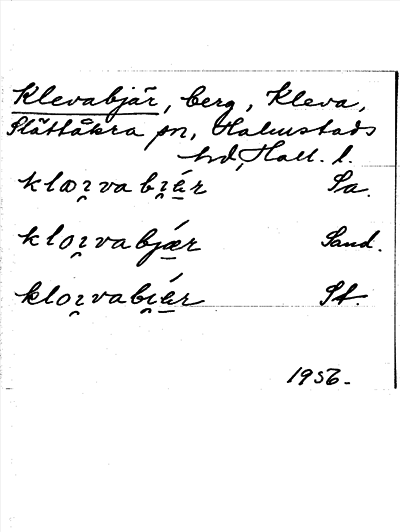 Klevabjär, berg, Kleva,
Slättåkra sn, Halmstads
hd, Hall. l.
klɒı̯vabı̯ǽr Sa.
kloı̯vabjǽr Sand.
kloı̯vabı̯ǽr St.
1956.